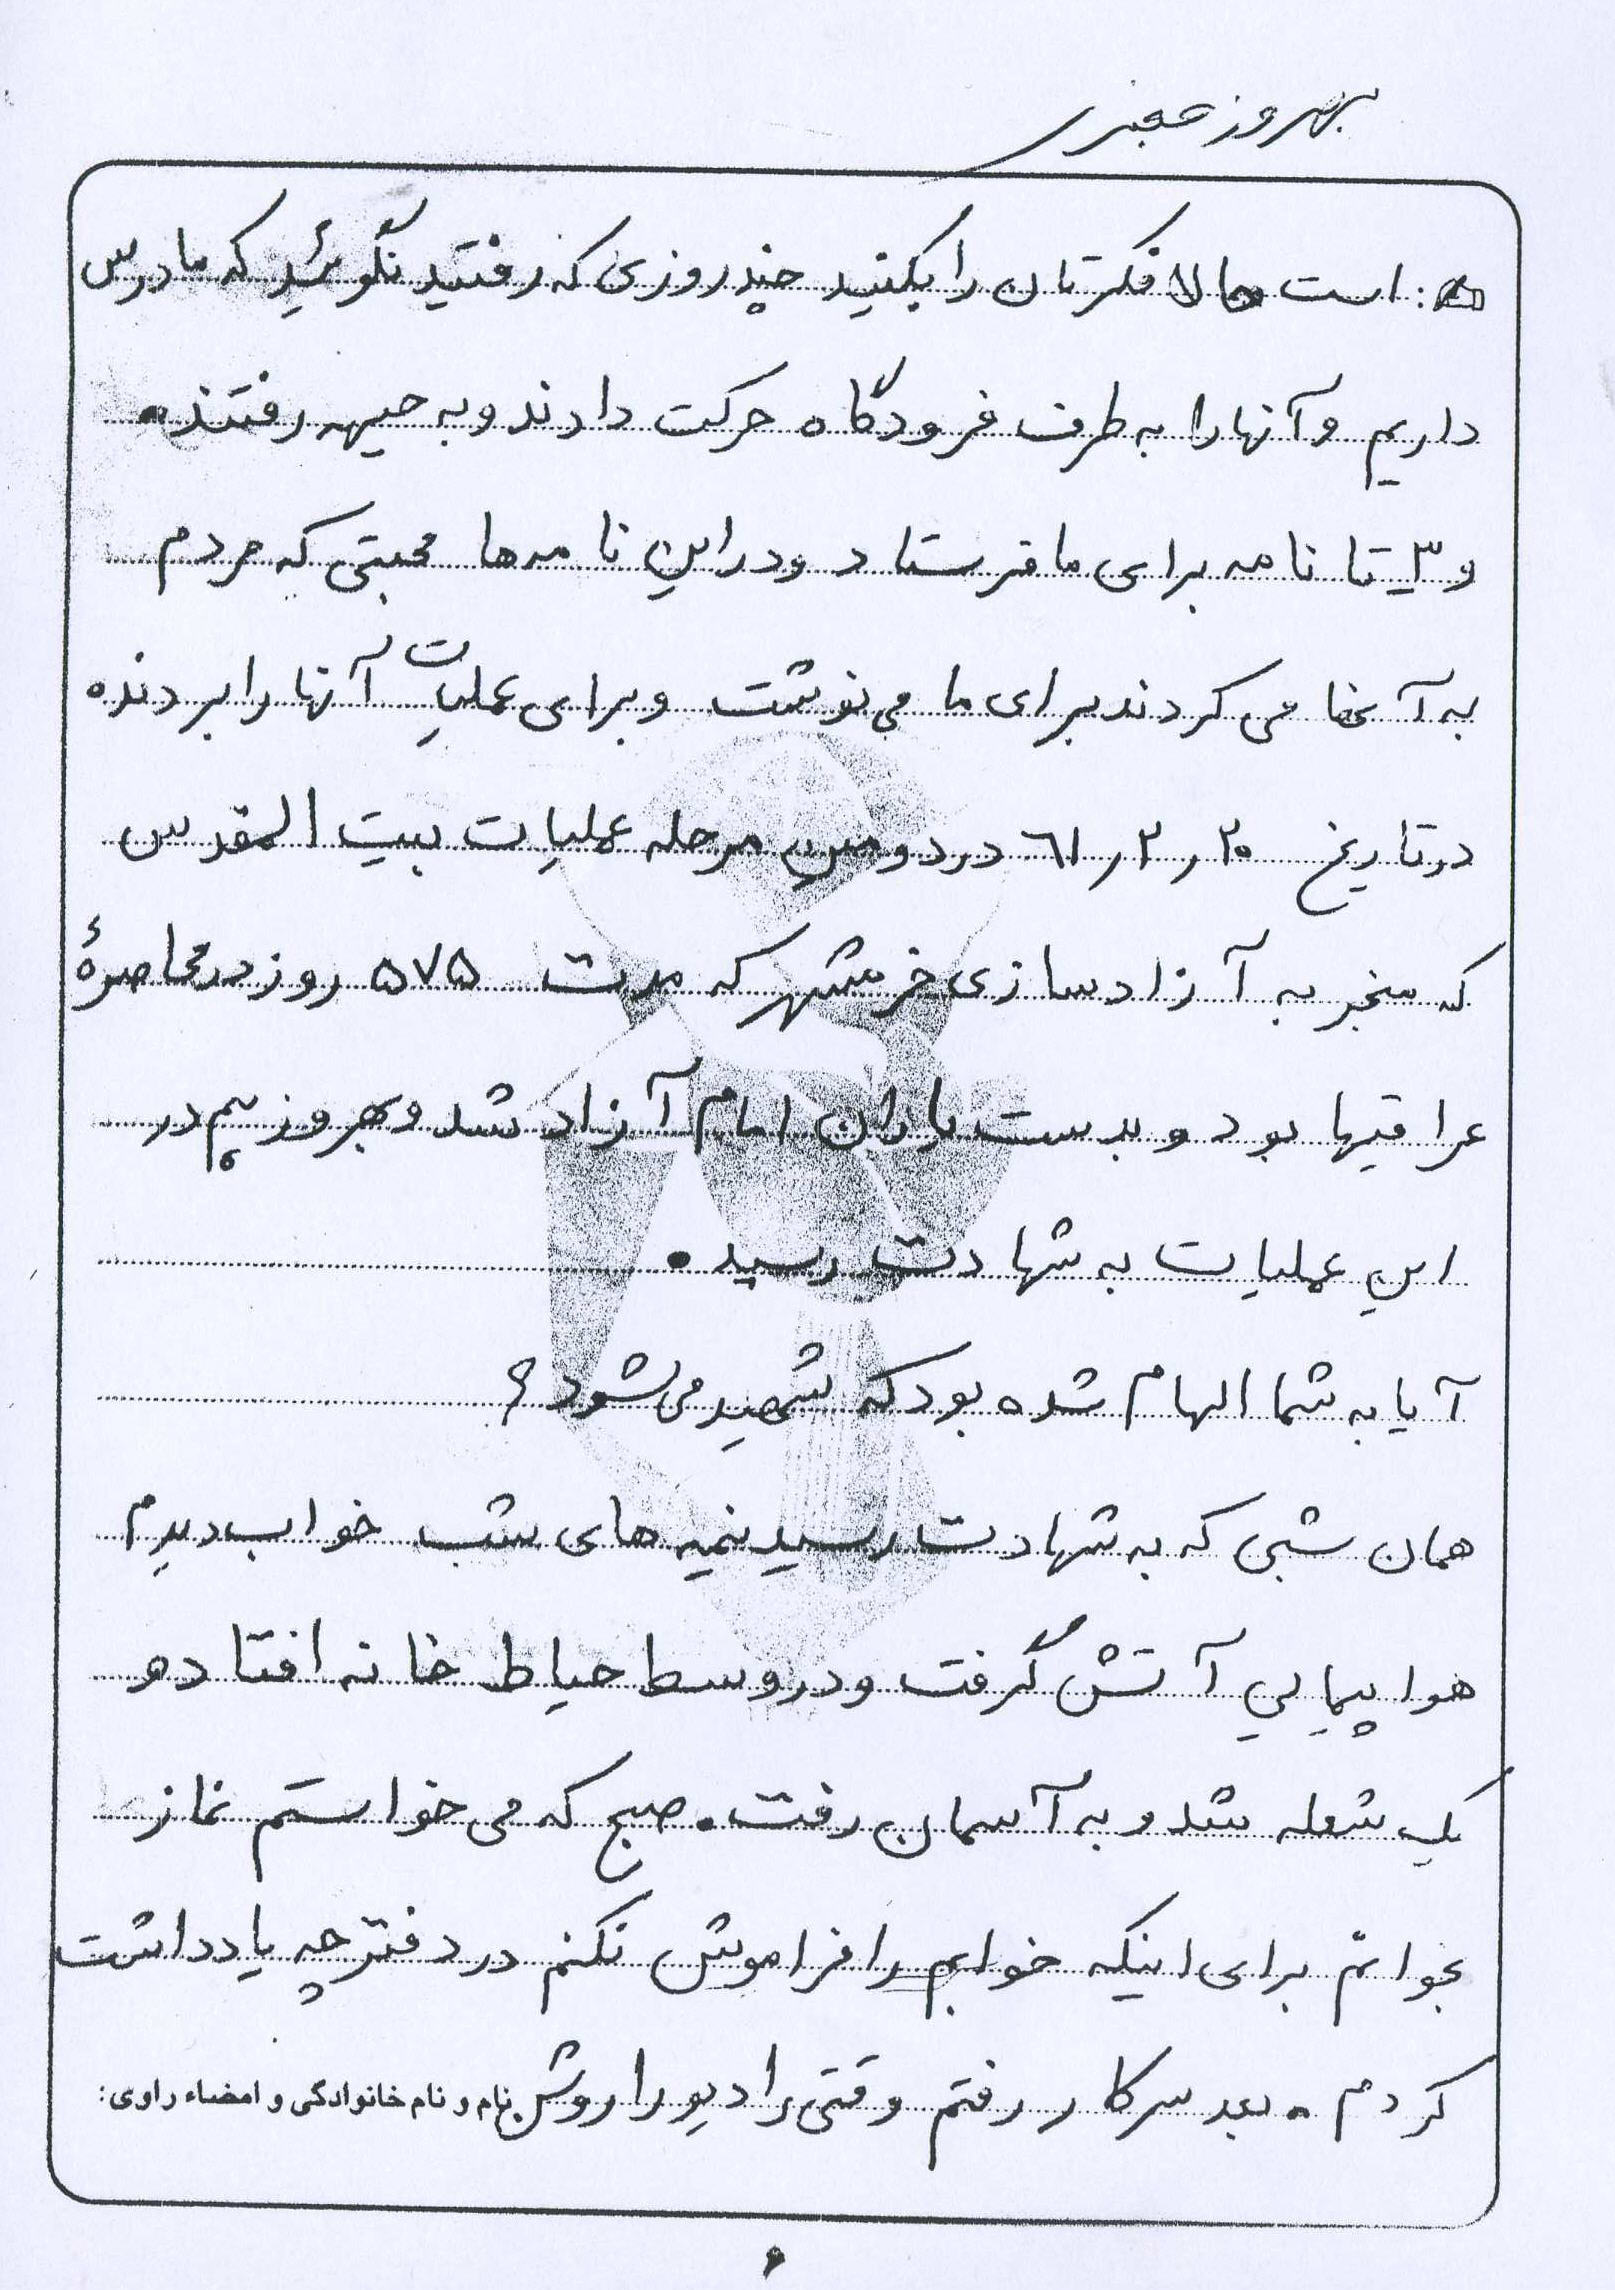 بهروز جعفری
است حالا فکرتان را بکنید چند روزی که رفتید نگوئید که ما درس
داریم و آنها را به طرف فرودگاه حرکت دادند و به جبهه رفتند.
و ۳ تا نامه برای ما فرستاد و در این نامه ها محبتی که مردم
به آنها می کردند برای ما می نوشت و برای عملیات آنها را بردند.
در تاریخ ۲۰ ر ۲ ر ۶۱ در دومین مرحله عملیات بیت المقدس
که منجر به آزادسازی خرمشهر که مدت ۵۷۵ روز در محاصرهٔ
عراقیها بود و بدست یاران امام آزاد شد و بهروز هم در
این عملیات به شهادت رسید.
آیا به شما الهام شده بود که شهید می شود؟
همان شبی که به شهادت رسید نیمه های شب خواب دیدم
هواپیمایی آتش گرفت و در وسط حیاط خانه افتاد و
یک شعله شد و به آسمان رفت. صبح که می خواستم نماز
بخوانم برای اینکه خوابم را فراموش نکنم در دفترچه یادداشت
کردم. بعد سر کار رفتم وقتی رادیو را روشن نام و نام خانوادگی و امضاء راوی:
۶